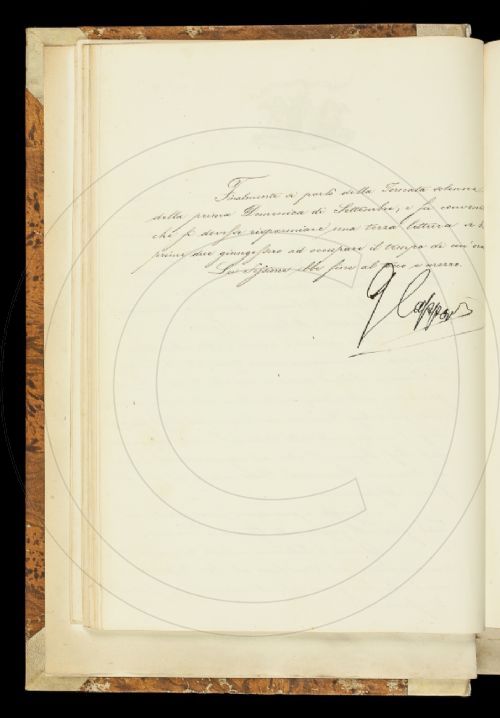 Finalmente si parlò della Tornata solenne
della prima Domenica di Settembre, e fu conven
che si dovesse risparmiare una terza lettura se
primi due giungessero ad occupare il tempo di un'
La sessione ebbe fine al tocco e mezzo.
G Capponi